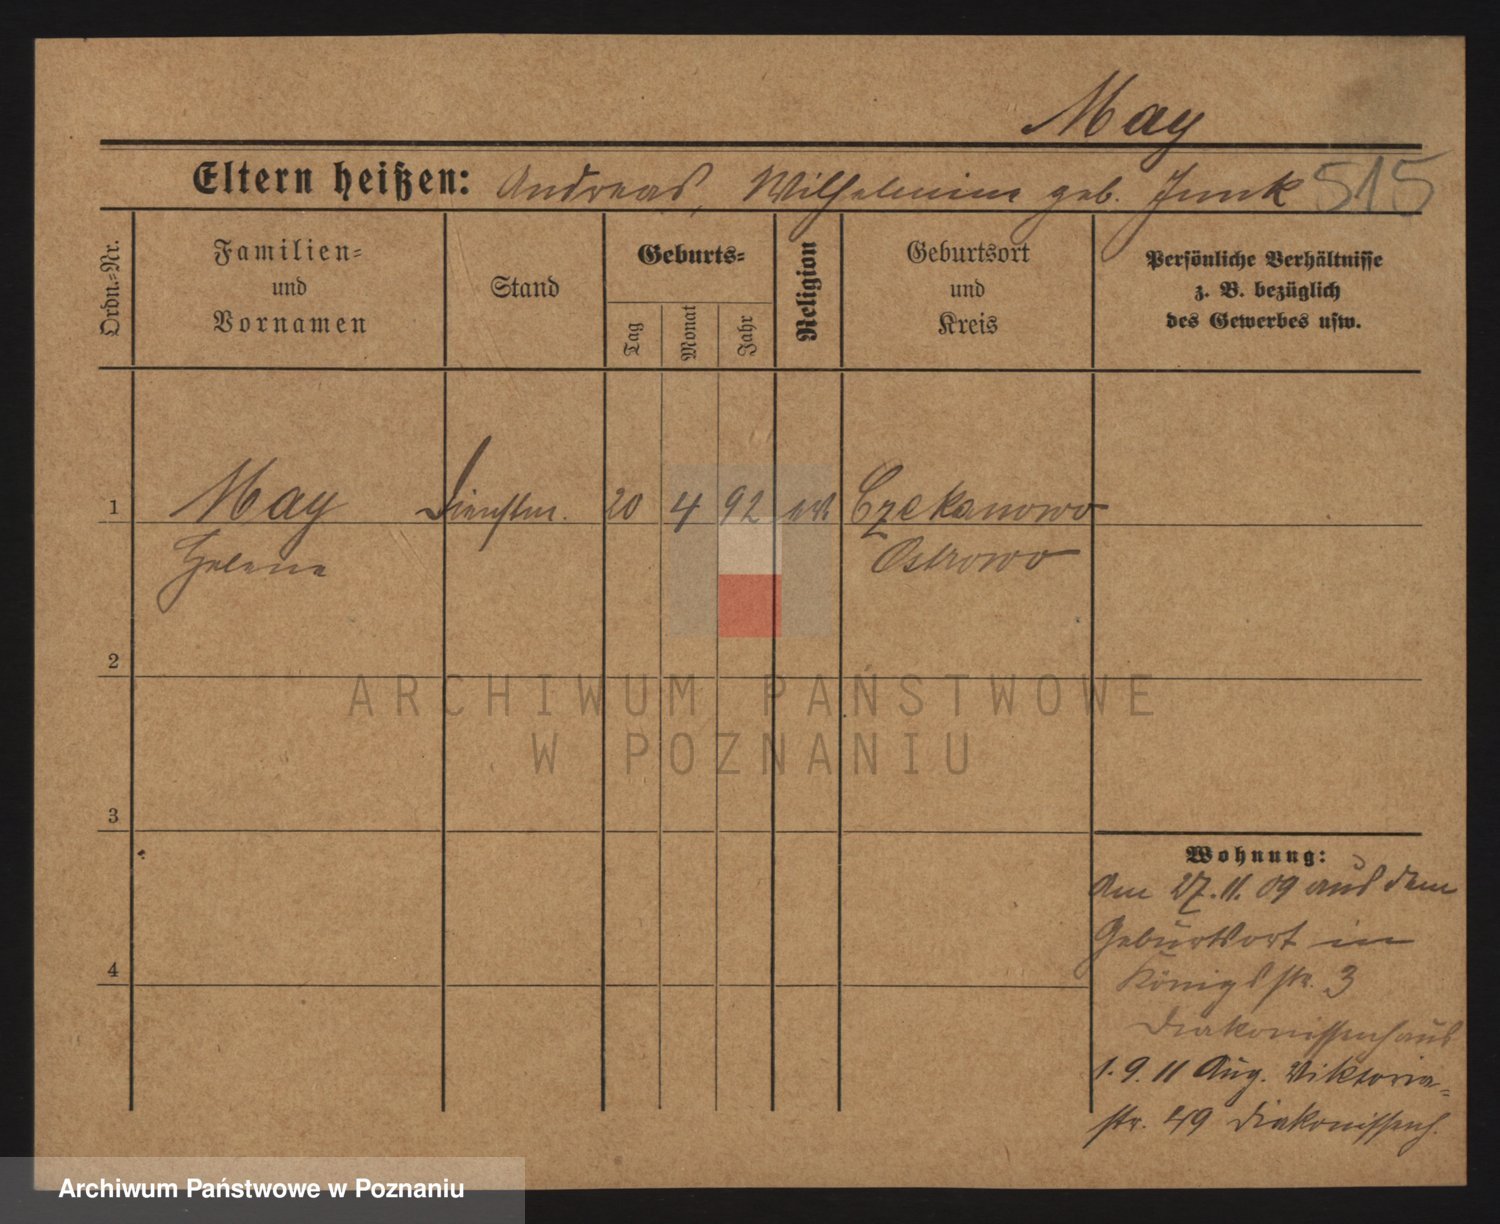 May
Eltern heißen: Andreas, Wilhelmine geb. Junk 515
Ordn.-Nr.
Familien-
und
Vornamen
Stand
Geburts-
Tag
Monat
Jahr
Religion
Geburtsort
und
Kreis
Persönliche Verhältnisse
z. B. bezüglich
des Gewerbes usw.
1 May Dienstm. 20 4 92 Czekanowo
Helene Ostrowo
2
3
4
Wohnung:
Am 27.11.09 aus dem
Geburtsort in
Königsstr. 3
Diakonissenhaus
1.9.11 Aug. Viktoria-
str. 49 Diakonissenh.
ARCHIWUM PAŃSTWOWE
W POZNANIU
Archiwum Państwowe w Poznaniu